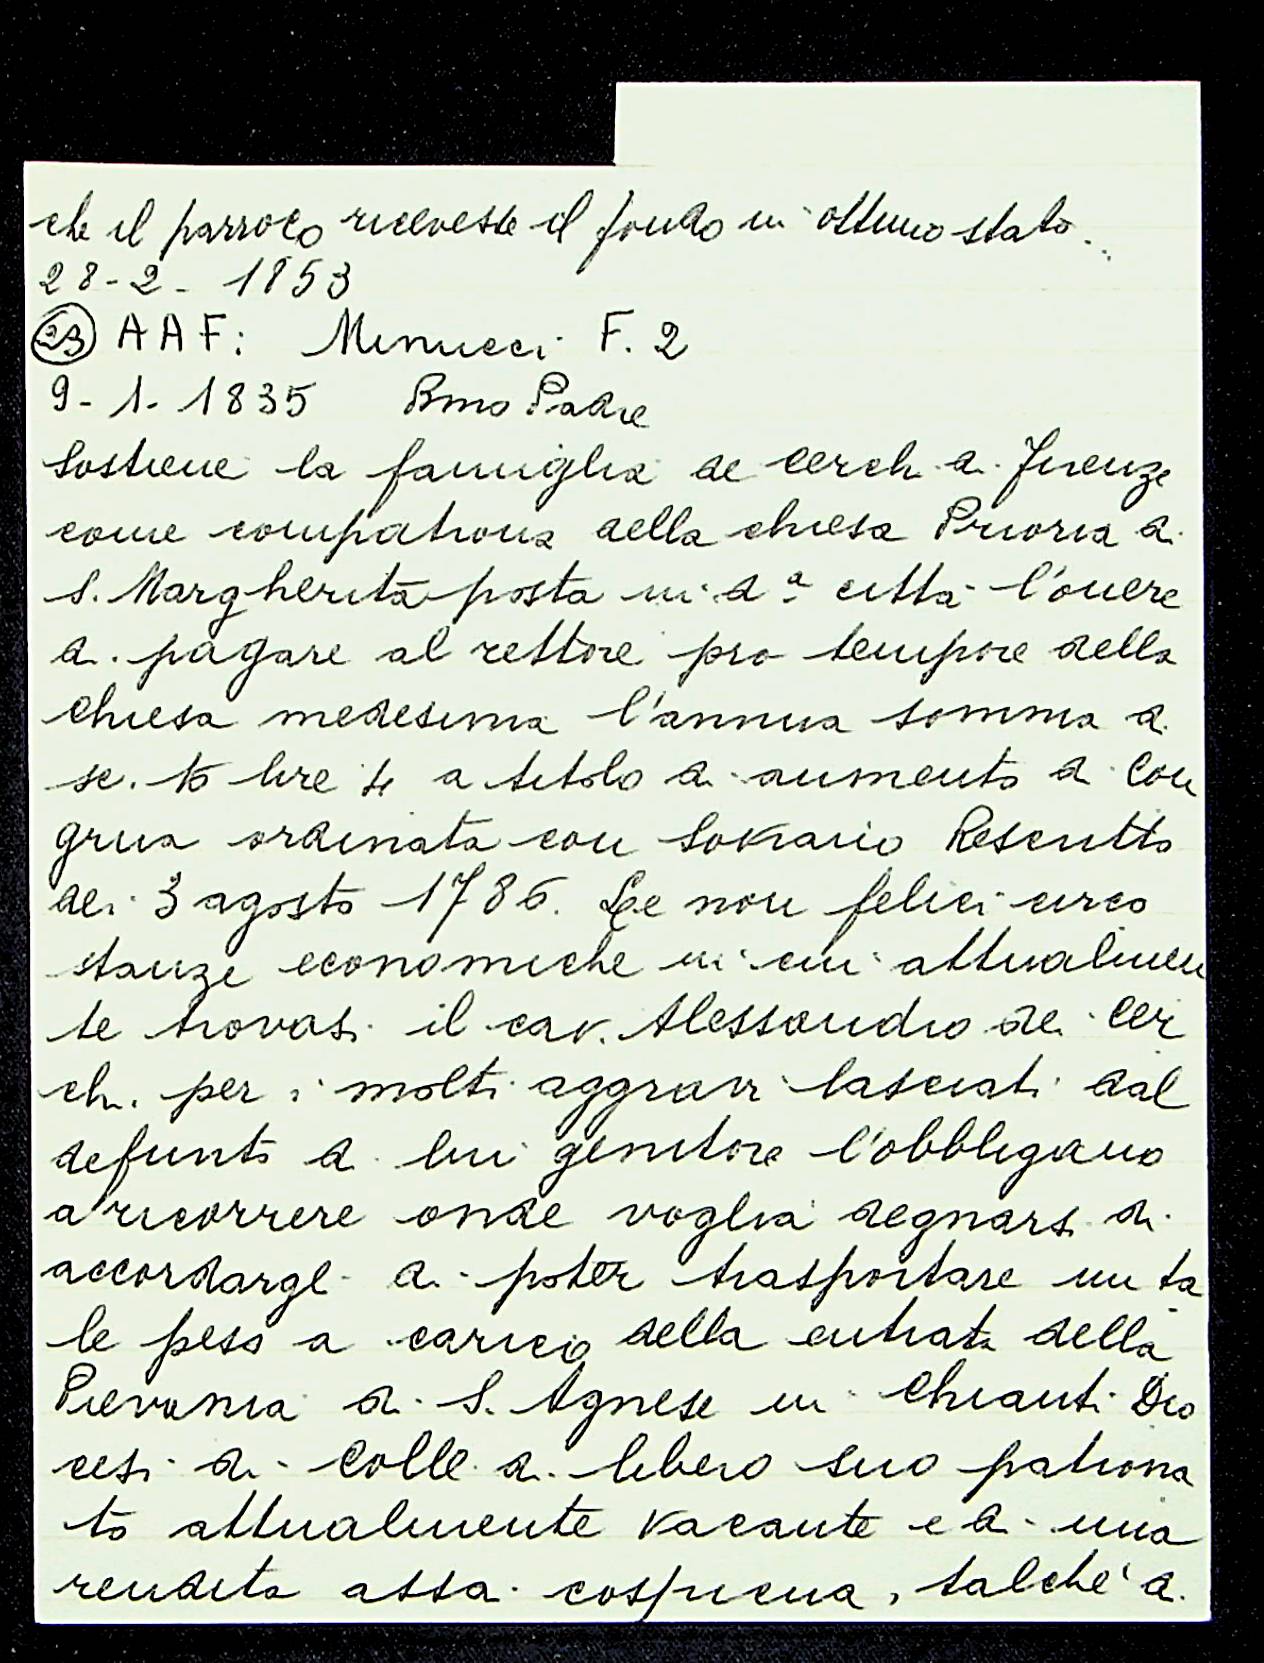 che il parroco ricevesse il fondo in ottimo stato..
28-2- 1853
(23) AAF: Minucci F. 2
9-1-1835 Bmo Padre
Sostiene la famiglia de Cerchi di Firenze
come compatrona della chiesa Prioria di
S. Margherita posta in dª città l'onere
di pagare al rettore pro tempore della
chiesa medesima l'annua somma di
sc. lire a titolo di aumento di Con
grua ordinata con Sovrano Rescritto
dei 3 agosto 1786. Le non felici circo
stanze economiche in cui attualmen
te trovasi il cav. Alessandro de Cer
chi per i molti aggravi lasciati dal
defunto di lui genitore l'obbligano
a ricorrere onde voglia degnarsi di
accordargli di poter trasportare un ta
le peso a carico della entrata della
Pievania di S. Agnese in Chianti Dio
cesi di Colle di libero suo patrona
to attualmente vacante e di una
rendita assai cospicua, talché di